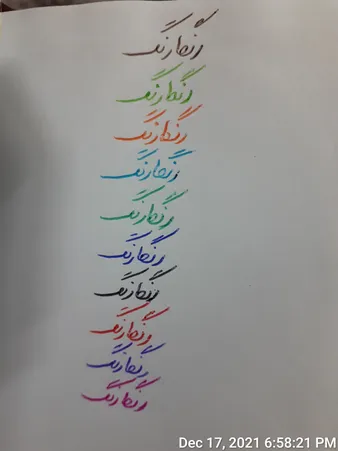 رنگارنگ
رنگارنگ
رنگارنگ
رنگارنگ
رنگارنگ
رنگارنگ
رنگارنگ
رنگارنگ
رنگارنگ
رنگارنگ
Dec 17, 2021 6:58:21 PM